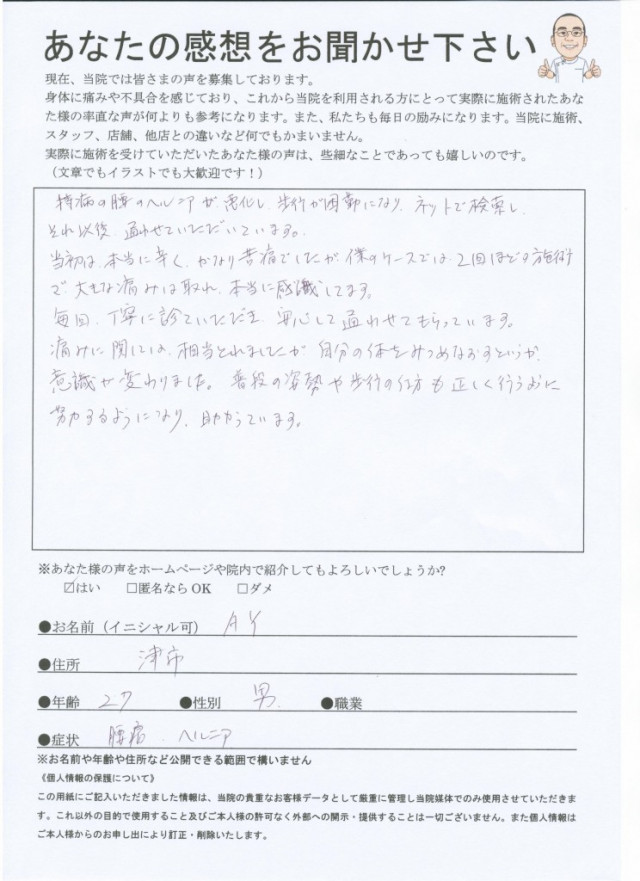 あなたの感想をお聞かせ下さい
現在、当院では皆さまの声を募集しております。
身体に痛みや不具合を感じており、これから当院を利用される方にとって実際に施術されたあな
た様の率直な声が何よりも参考になります。また、私たちも毎日の励みになります。当院に施術、
スタッフ、店舗、他店との違いなど何でもかまいません。
実際に施術を受けていただいたあなた様の声は、些細なことであっても嬉しいのです。
（文章でもイラストでも大歓迎です！）
持病の腰のヘルニアが悪化し、歩行が困難になり、ネットで検索し、
それ以後、通わせていただいています。
当初は、本当に辛く、かなり苦痛でしたが、僕のケースでは、2回ほどの施術
で、大きな痛みは取れ、本当に感謝してます。
毎回、丁寧に診ていただき、安心して通わせてもらっています。
痛みに関しては、相当とれましたが、自分の体をみつめなおすというか、
意識が変わりました。普段の姿勢や歩行の仕方も正しく行うように
努力するようになり、助かっています。
※あなた様の声をホームページや院内で紹介してもよろしいでしょうか?
☑はい　□匿名なら OK　□ダメ
●お名前（イニシャル可） A Y
●住所 津市
●年齢 27 ●性別 男. ●職業
●症状 腰痛 . ヘルニア
※お名前や年齢や住所など公開できる範囲で構いません
《個人情報の保護について》
この用紙にご記入いただきました情報は、当院の貴重なお客様データとして厳重に管理し当院媒体でのみ使用させていただきま
す。これ以外の目的で使用すること及びご本人様の許可なく外部への開示・提供することは一切ございません。また個人情報は
ご本人様からのお申し出により訂正・削除いたします。